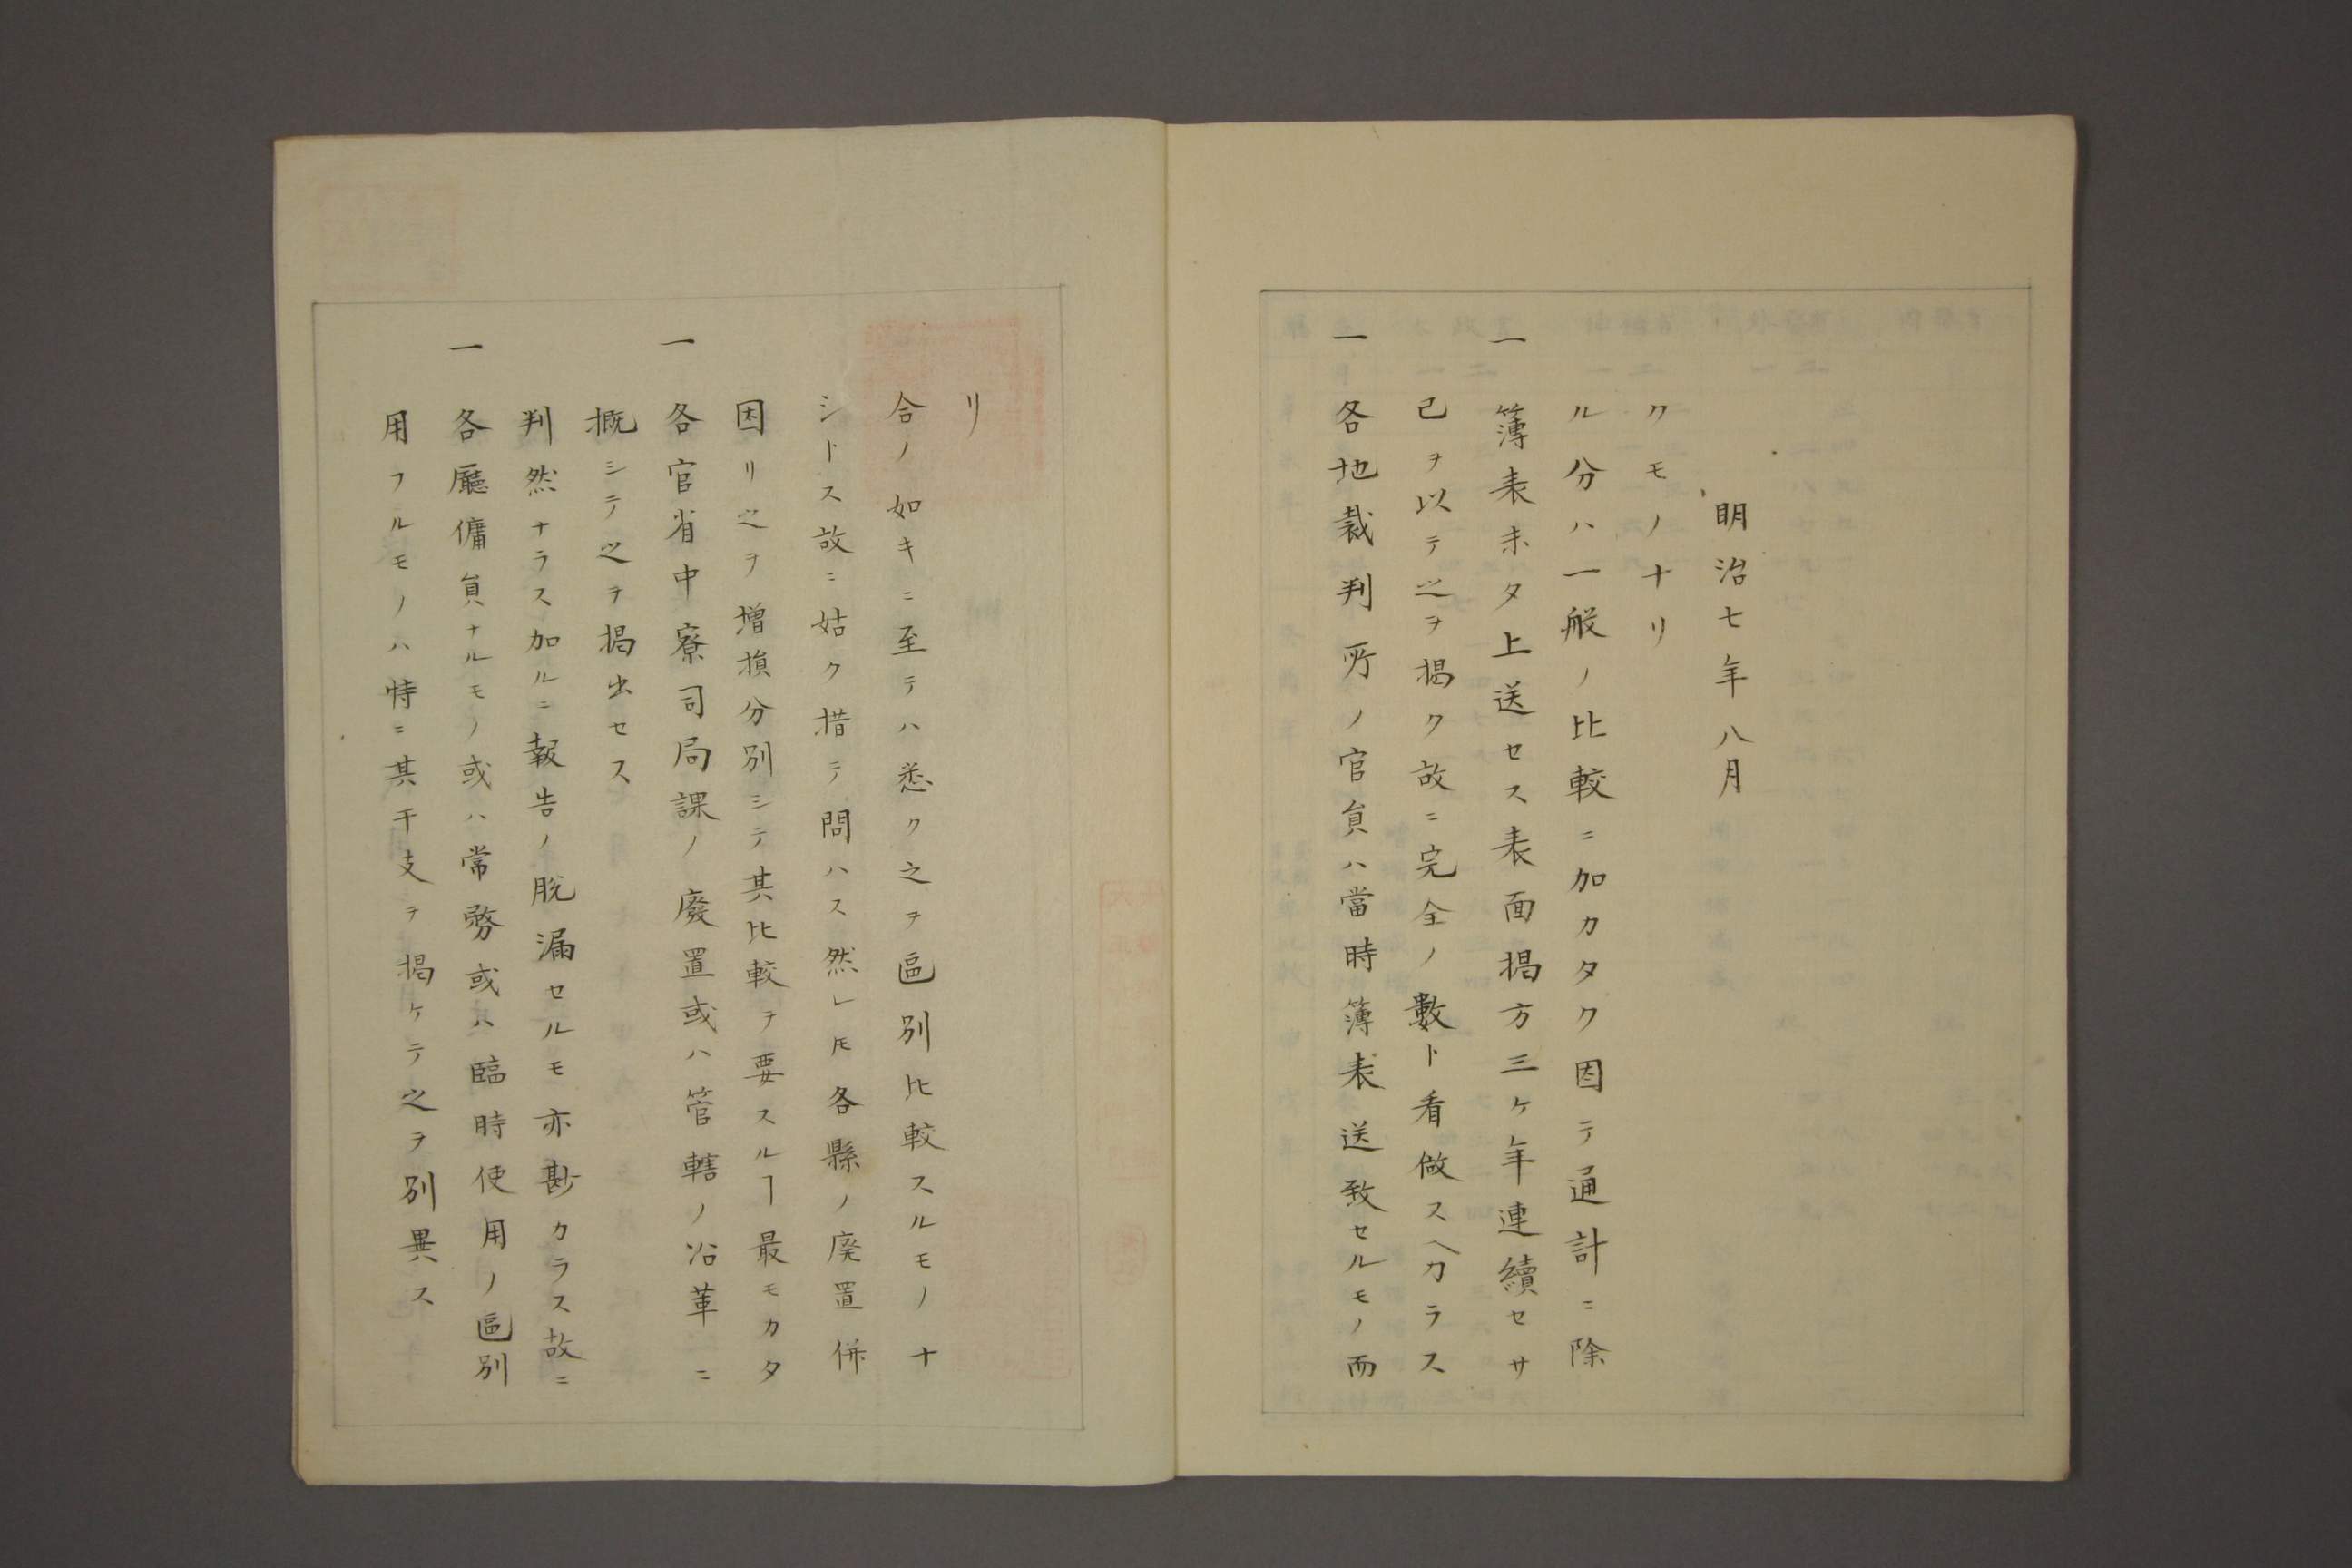 用フルモノハ特ニ其干支ヲ掲ケテ之ヲ別異ス
一各廳傭員ナルモノ或ハ常務或ハ臨時使用ノ區別
判然ナラス加ルニ報告ノ脱漏セルモ亦尠カラス故ニ
概シテ之ヲ掲出セス
一各官省中寮司局課ノ廢置或ハ管轄ノ沿革ニ
因リ之ヲ増損分別シテ其比較ヲ要スルヿ最モカタ
シトス故ニ姑ク措テ問ハス然レ𪜈各縣ノ廃置併
合ノ如キニ至テハ悉ク之ヲ區別比較スルモノナ
リ
一各地裁判所ノ官員ハ當時簿表送致セルモノ而
已ヲ以テ之ヲ掲ク故ニ完全ノ數ト看做スヘカラス
一簿表未タ上送セス表面掲方三ケ年連續セサ
ル分ハ一般ノ比較ニ加カタク因テ通計ニ除
クモノナリ
明治七年八月